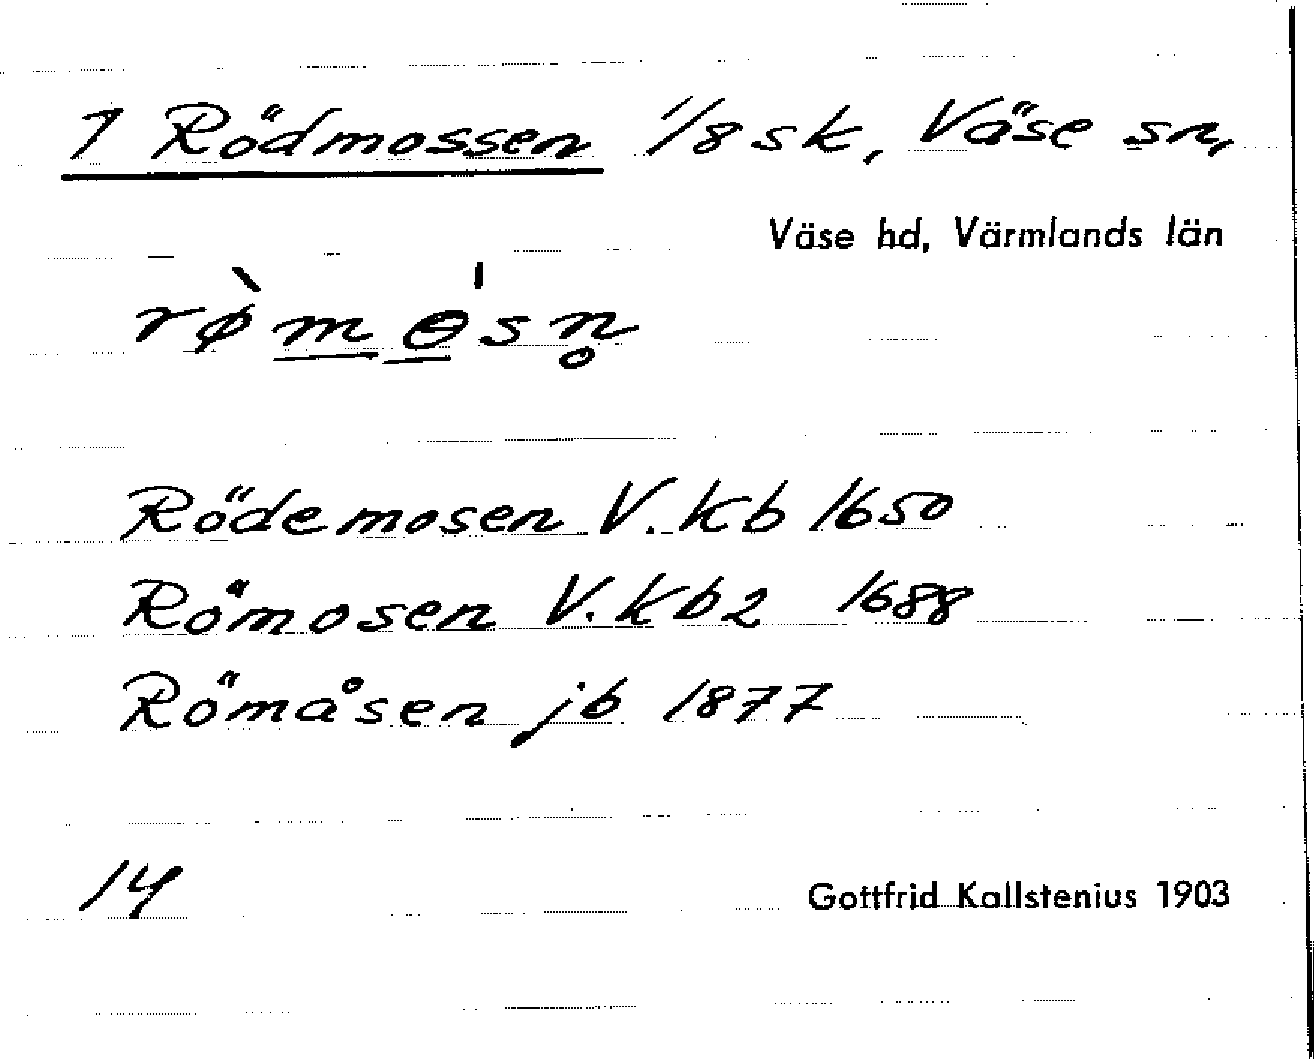 1 Rödmossen 1/8 sk, Väse sn,
Väse hd, Värmlands län
rø̀mɵ̍sn̥
Rödemosen V. Kb 1650
Römosen V. Kb2 1688
Römåsen jb 1877
14
Gottfrid Kallstenius 1903